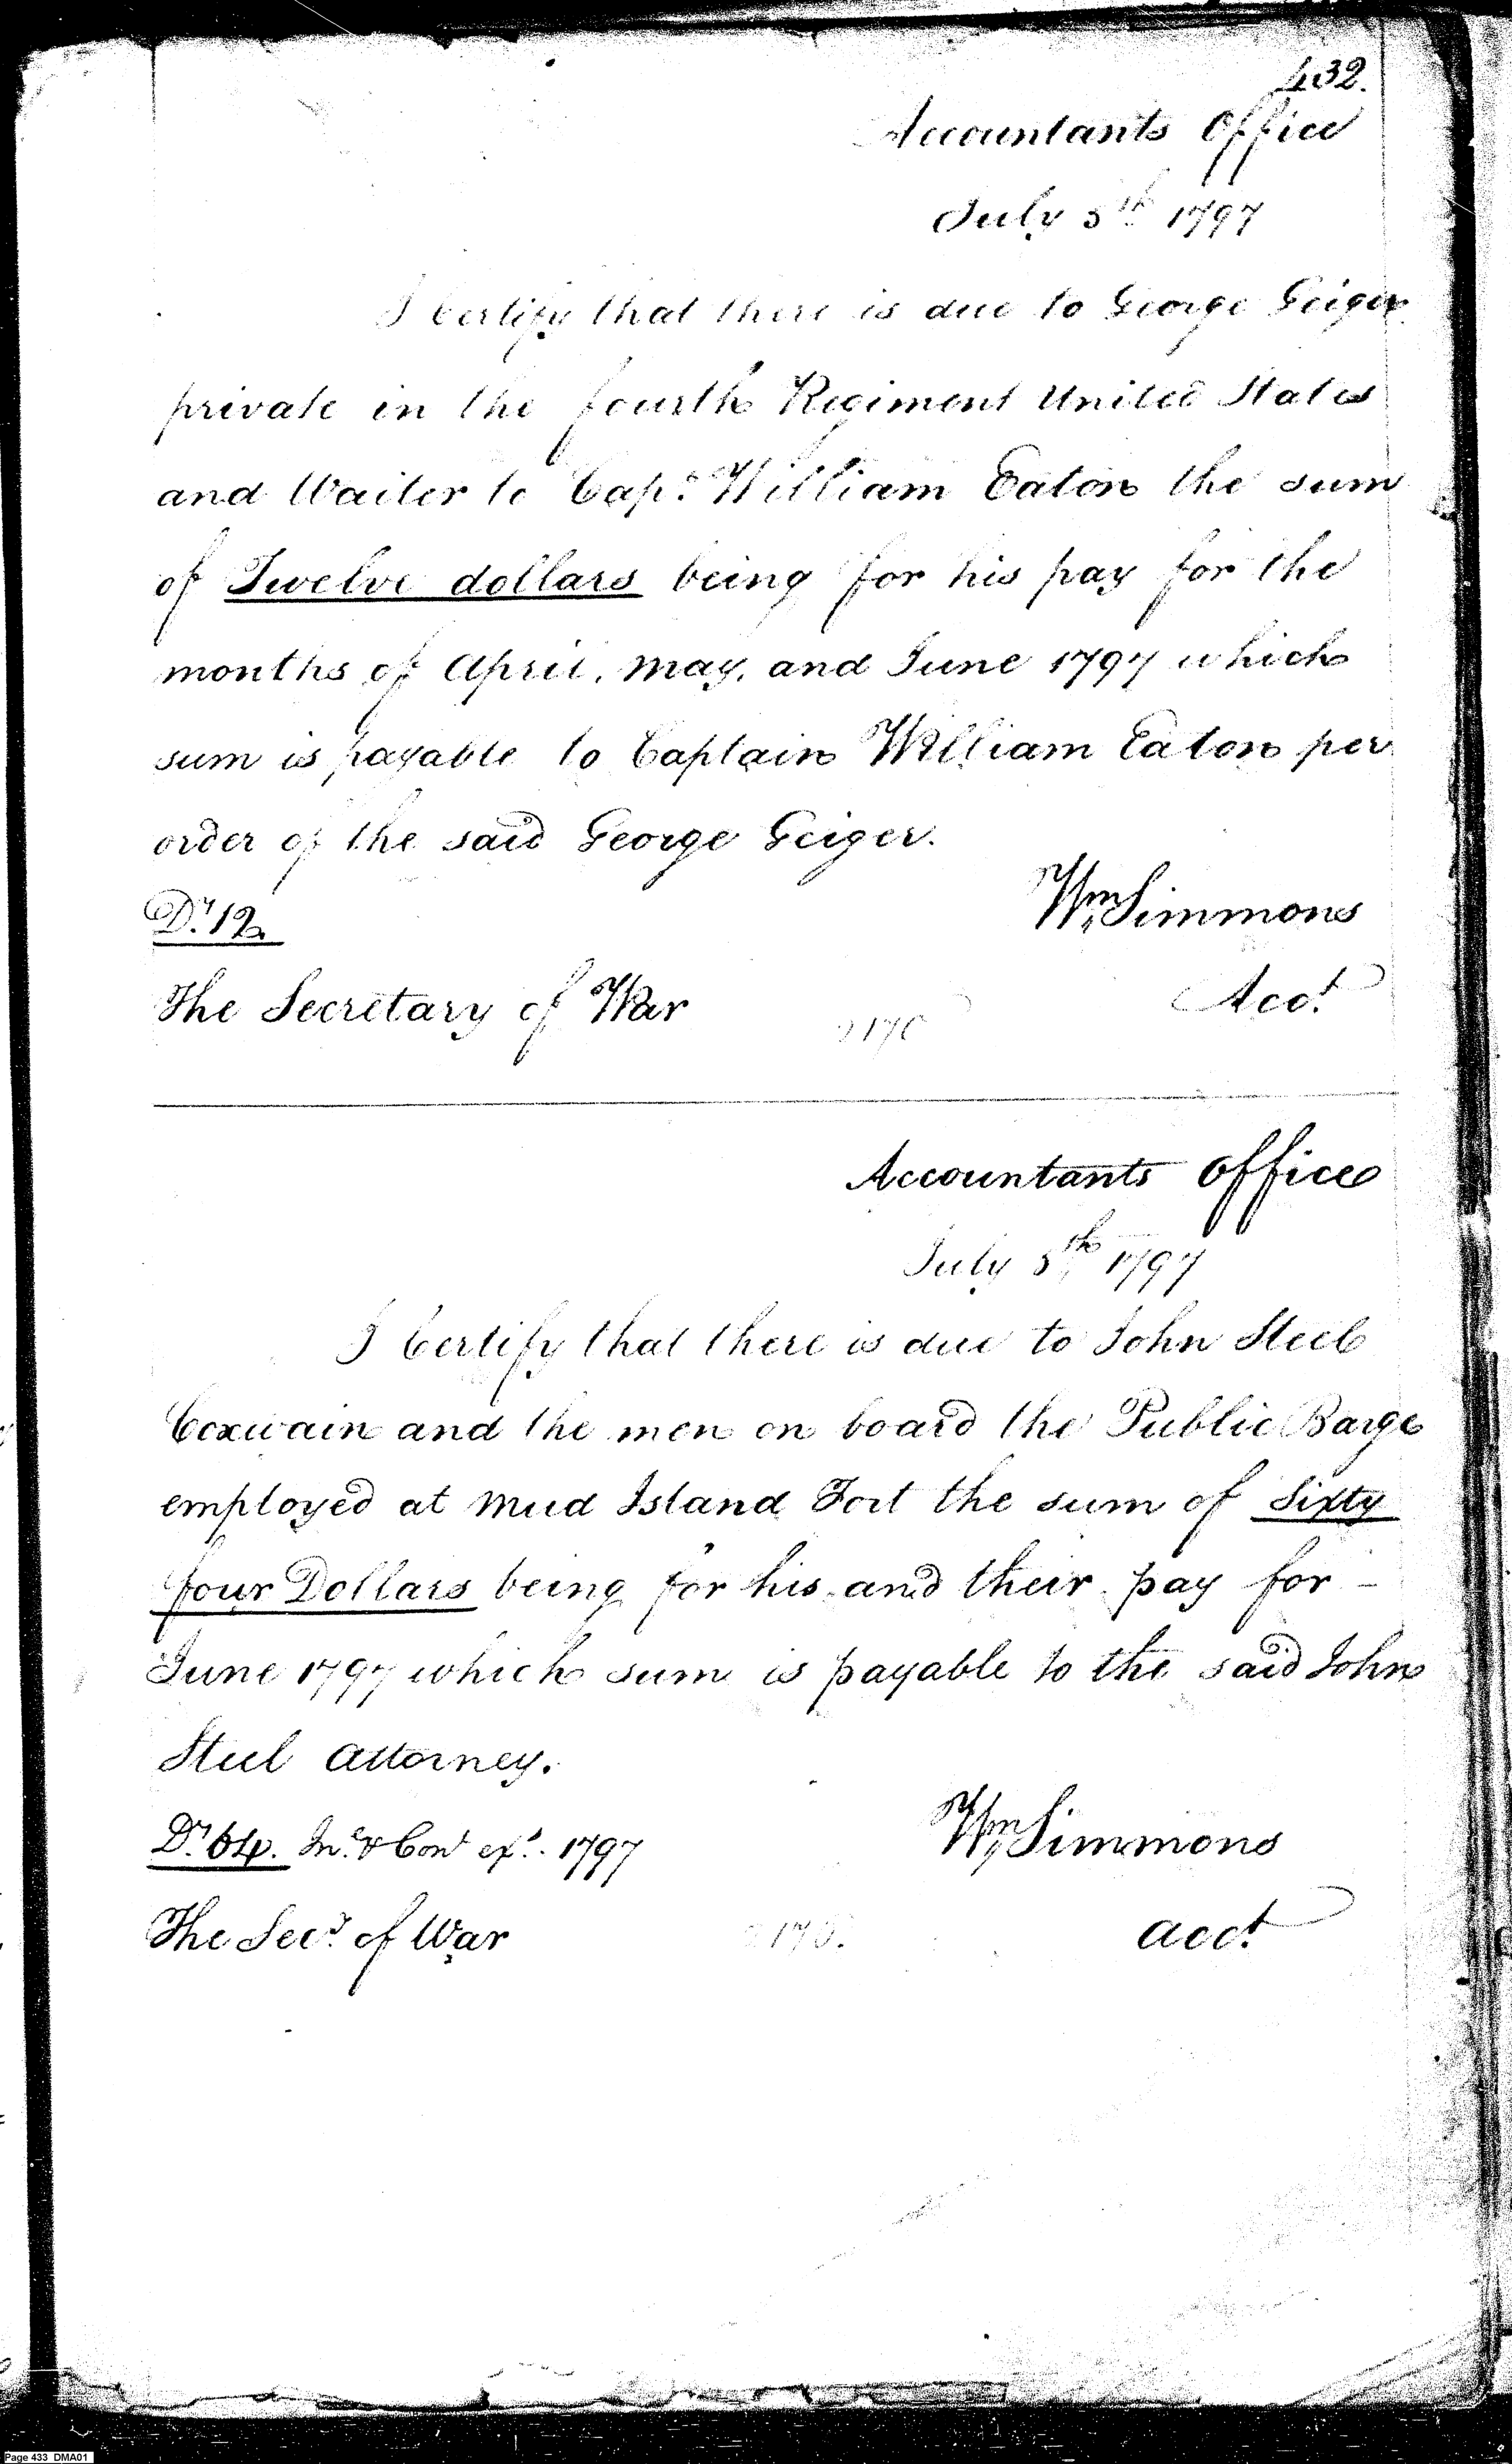 432.
Accountants Office
July 5th 1797
I Certify that there is due to George Geiger
private in the fourth Regiment United States
and Waiter to Capt. William Eaton the sum
of Twelve dollars being for his pay for the
months of April, May, and June 1797 which
sum is payable to Captain William Eaton per
order of the said George Geiger.
Dr. 12
Wm Simmons
The Secretary of War
Acct.
Accountants Office
July 5th 1797
I Certify that there is due to John Steel
Coxwain and the men on board the Public Barge
employed at Mud Island Fort the sum of Sixty
four Dollars being for his and their pay for –
June 1797 which sum is payable to the said John
Steel Attorney.
Dr. 64. In.t & Cont exs. 1797
Wm Simmons
The Secy. of War
acct.
Page 433 DMA01